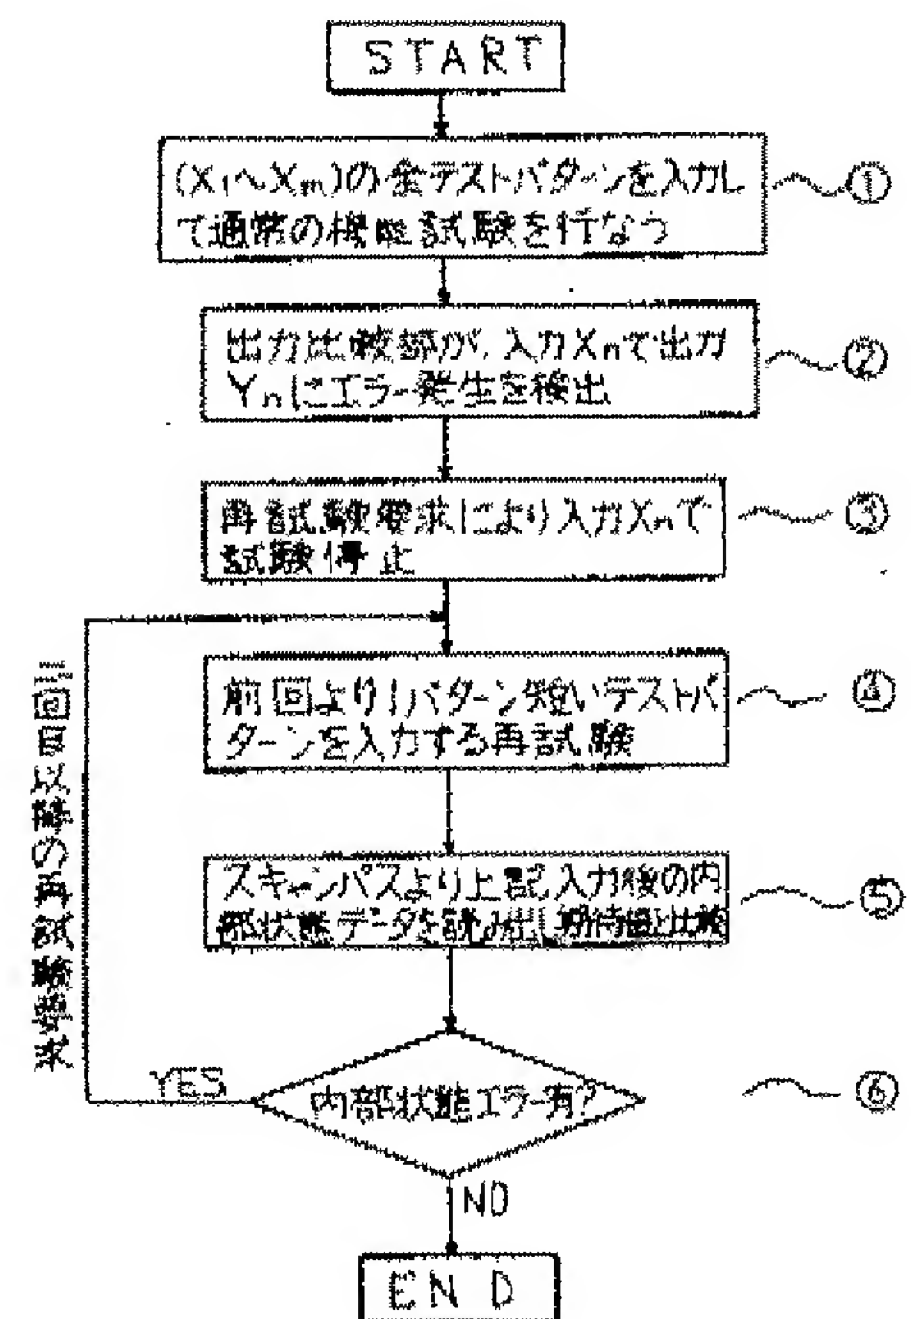 START
(X₁〜Xₘ)の全テストパターンを入力し
て通常の機能試験を行なう
①
出力比較部が、入力Xₙで出力
Yₙにエラー発生を検出
②
再試験要求により入力Xₙで
試験停止
③
前回より1パターン短いテストパ
ターンを入力する再試験
④
スキャンパスより上記入力後の内
部状態データを読み出し期待値と比較
⑤
内部状態エラー有?
⑥
YES
NO
END
二回目以降の再試験要求